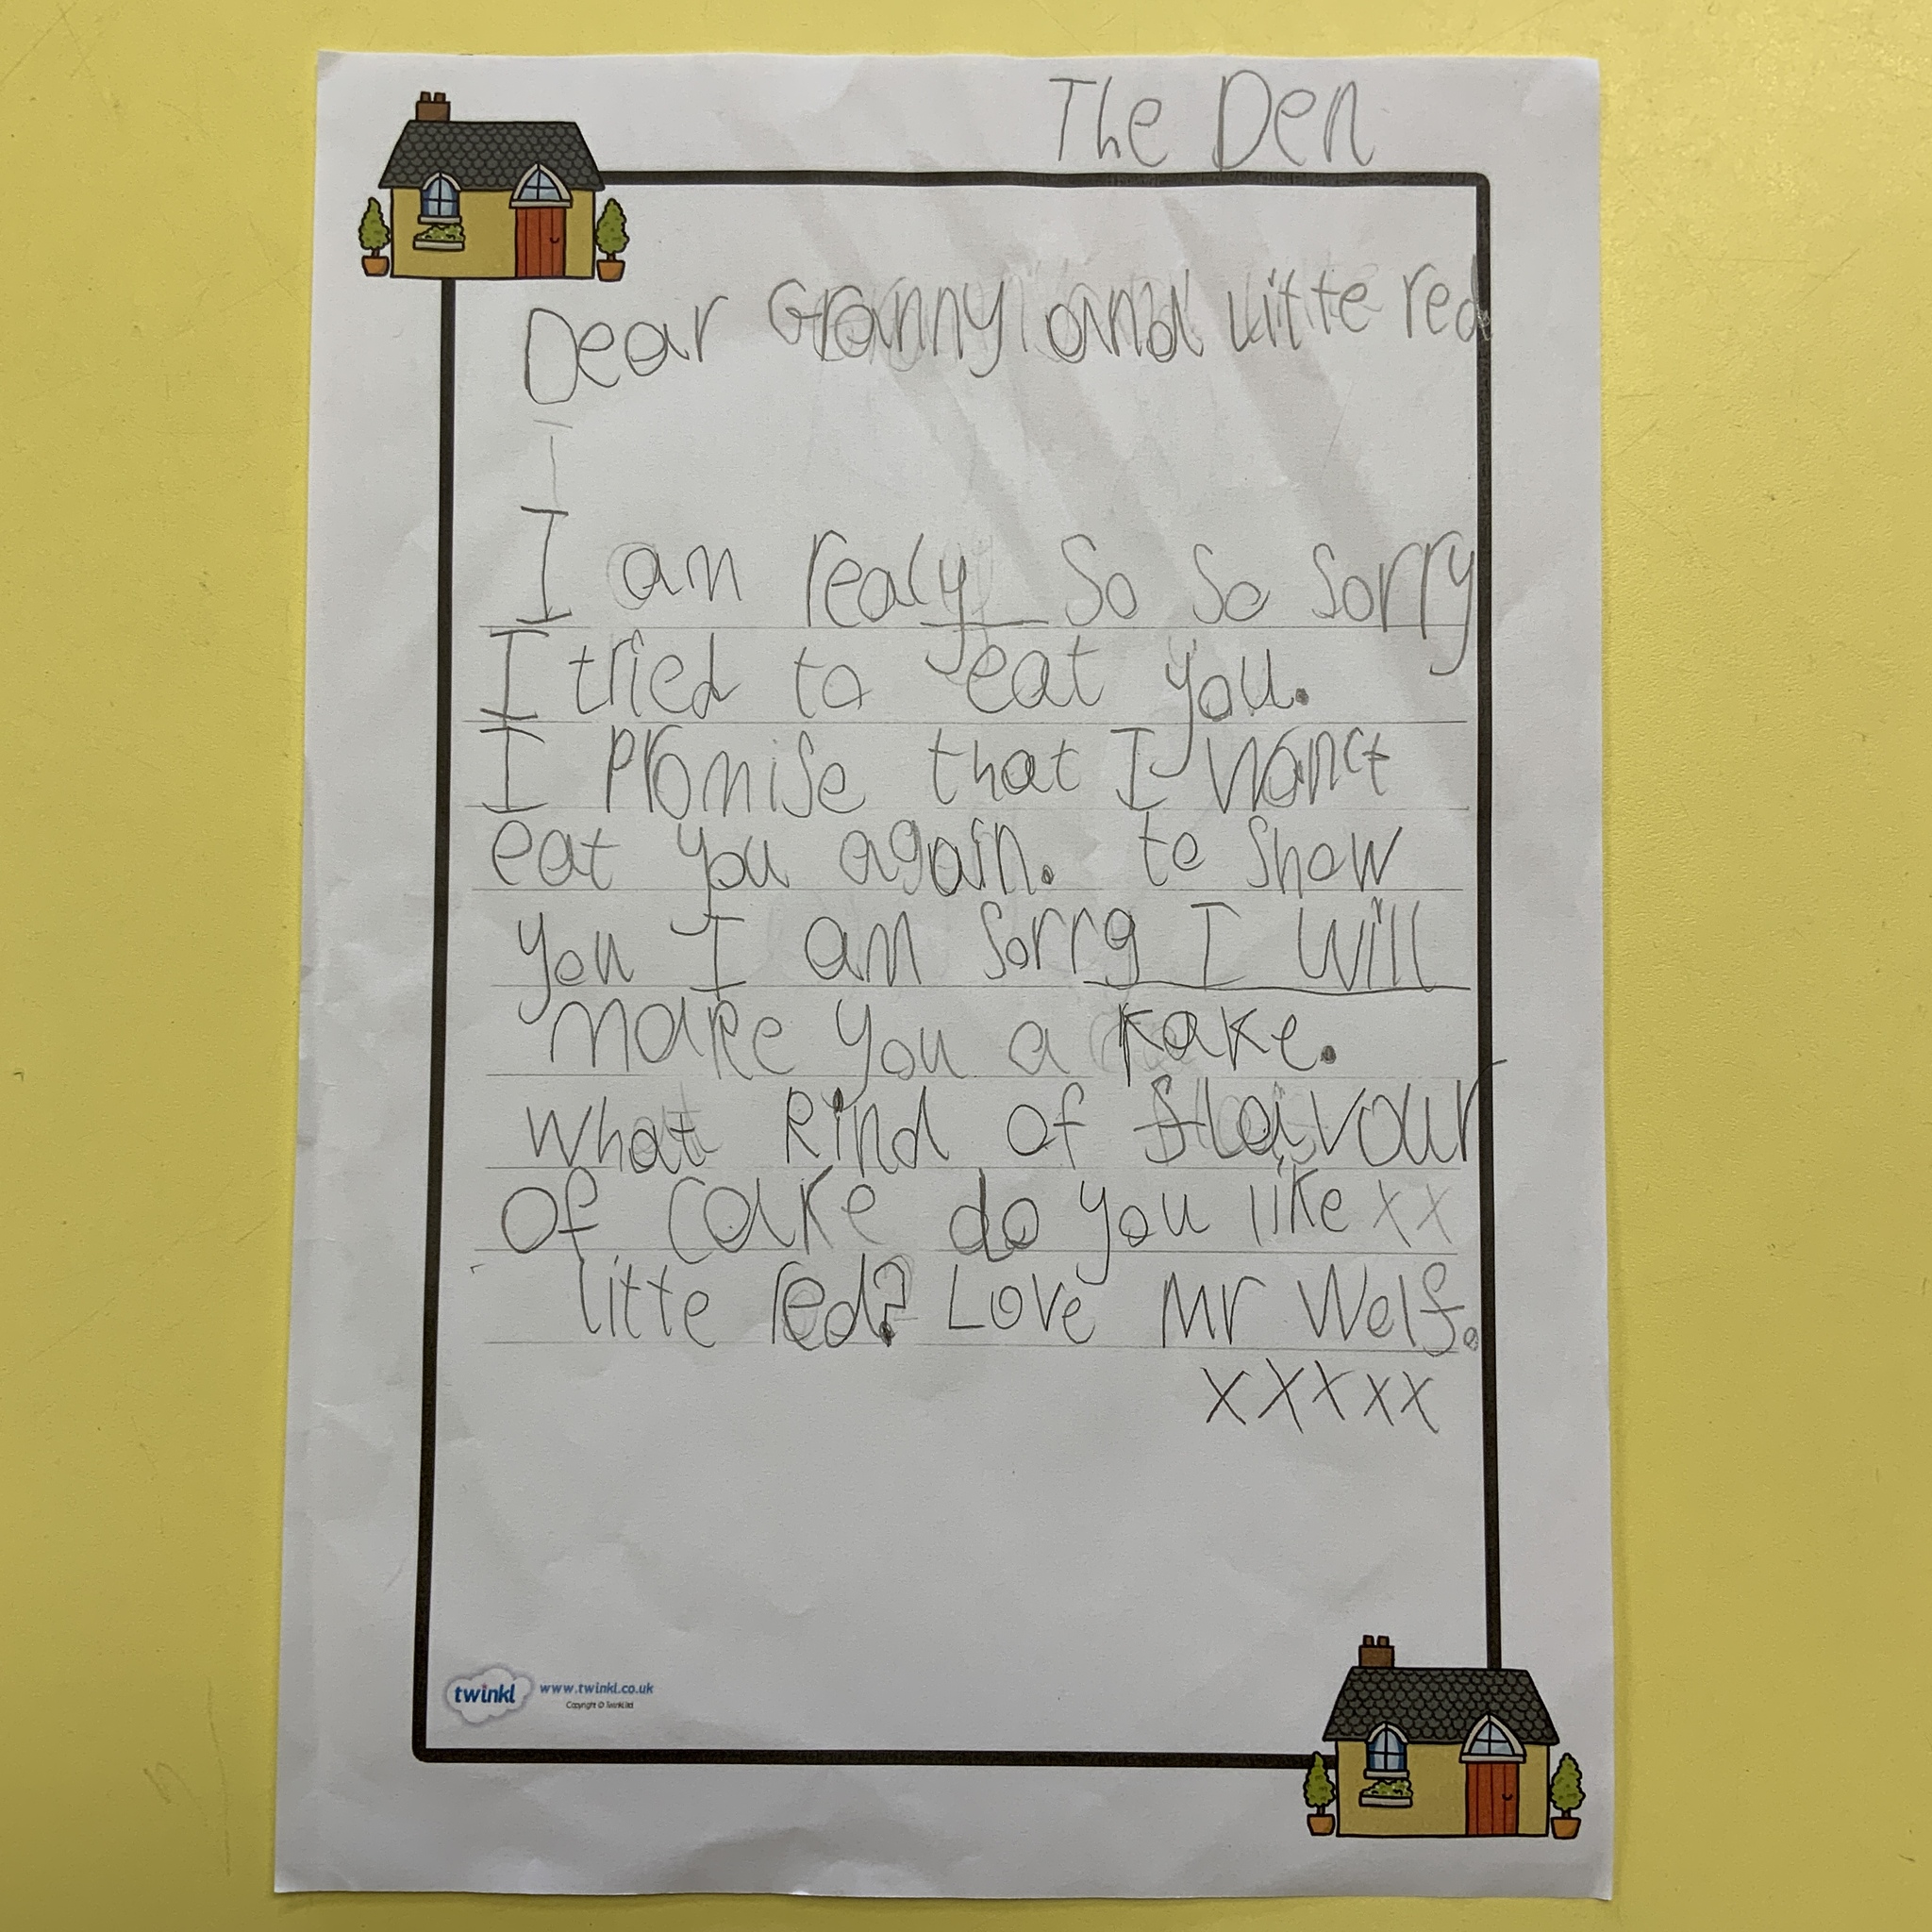 The Den
Dear Granny and Litte red
I
I am realy so so sorry
I tried to eat you.
I promise that I wonct
eat you again. to show
you I am sorry I will
make you a kake.
what kind of flaivour
of cake do you like xx
litte red? Love Mr Wolf.
xxxxx
twinkl www.twinkl.co.uk
Copyright © Twinkl ltd